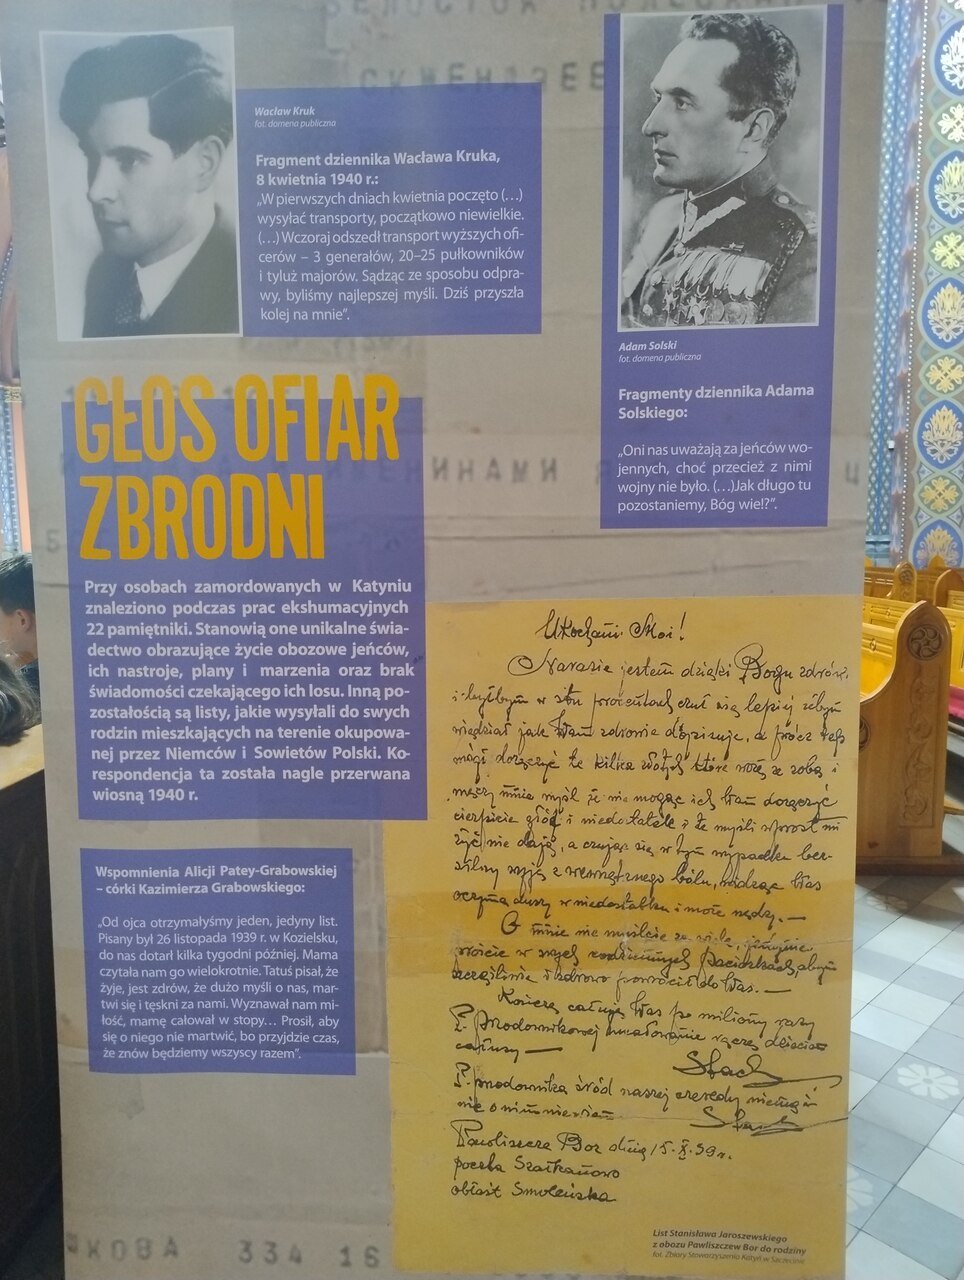 Wacław Kruk
fot. domena publiczna
Fragment dziennika Wacława Kruka,
8 kwietnia 1940 r.:
„W pierwszych dniach kwietnia poczęto (...)
wysyłać transporty, początkowo niewielkie.
(...) Wczoraj odszedł transport wyższych ofi-
cerów – 3 generałów, 20–25 pułkowników
i tyluż majorów. Sądząc ze sposobu odpra-
wy, byliśmy najlepszej myśli. Dziś przyszła
kolej na mnie”.
Adam Solski
fot. domena publiczna
Fragmenty dziennika Adama
Solskiego:
„Oni nas uważają za jeńców wo-
jennych, choć przecież z nimi
wojny nie było. (...)Jak długo tu
pozostaniemy, Bóg wie!?”.
GŁOS OFIAR
ZBRODNI
Przy osobach zamordowanych w Katyniu
znaleziono podczas prac ekshumacyjnych
22 pamiętniki. Stanowią one unikalne świa-
dectwo obrazujące życie obozowe jeńców,
ich nastroje, plany i marzenia oraz brak
świadomości czekającego ich losu. Inną po-
zostałością są listy, jakie wysyłali do swych
rodzin mieszkających na terenie okupowa-
nej przez Niemców i Sowietów Polski. Ko-
respondencja ta została nagle przerwana
wiosną 1940 r.
Wspomnienia Alicji Patey-Grabowskiej
– córki Kazimierza Grabowskiego:
„Od ojca otrzymałyśmy jeden, jedyny list.
Pisany był 26 listopada 1939 r. w Kozielsku,
do nas dotarł kilka tygodni później. Mama
czytała nam go wielokrotnie. Tatuś pisał, że
żyje, jest zdrów, że dużo myśli o nas, mar-
twi się i tęskni za nami. Wyznawał nam mi-
łość, mamę całował w stopy... Prosił, aby
się o niego nie martwić, bo przyjdzie czas,
że znów będziemy wszyscy razem”.
Ukochani Moi!
Narazie jestem dzięki Bogu zdrów,
i byłbym w stu procentach czuł się lepiej żebym
wiedział jak Wam zdrowie dopisuje, a prócz
doręczyć te kilka złotych które noszę ze sobą i
męczy mnie myśl że nie mogąc ich Wam doręczyć
cierpicie głód i niedostatek i te myśli wprost mi
żyć nie dają, a czując się w tym wypadku bez-
silny wyję z wewnętrznego bólu, widząc Was
oczyma duszy w niedostatku i może nędzy. —
O mnie nie myślcie za wiele, jedynie
proście w swych codziennych paciorkach abym
szczęśliwie i zdrowo powrócił do Was. —
Kończę całując Was po miliony razy
całusy —
Stach
Pawliszcze Bor dnia 15.X.39r.
poczta
obłast Smoleńska
List Stanisława Jaroszewskiego
z obozu Pawliszczew Bor do rodziny
fot. Zbiory Stowarzyszenia Katyń w Szczecinie
КОВА 334 16